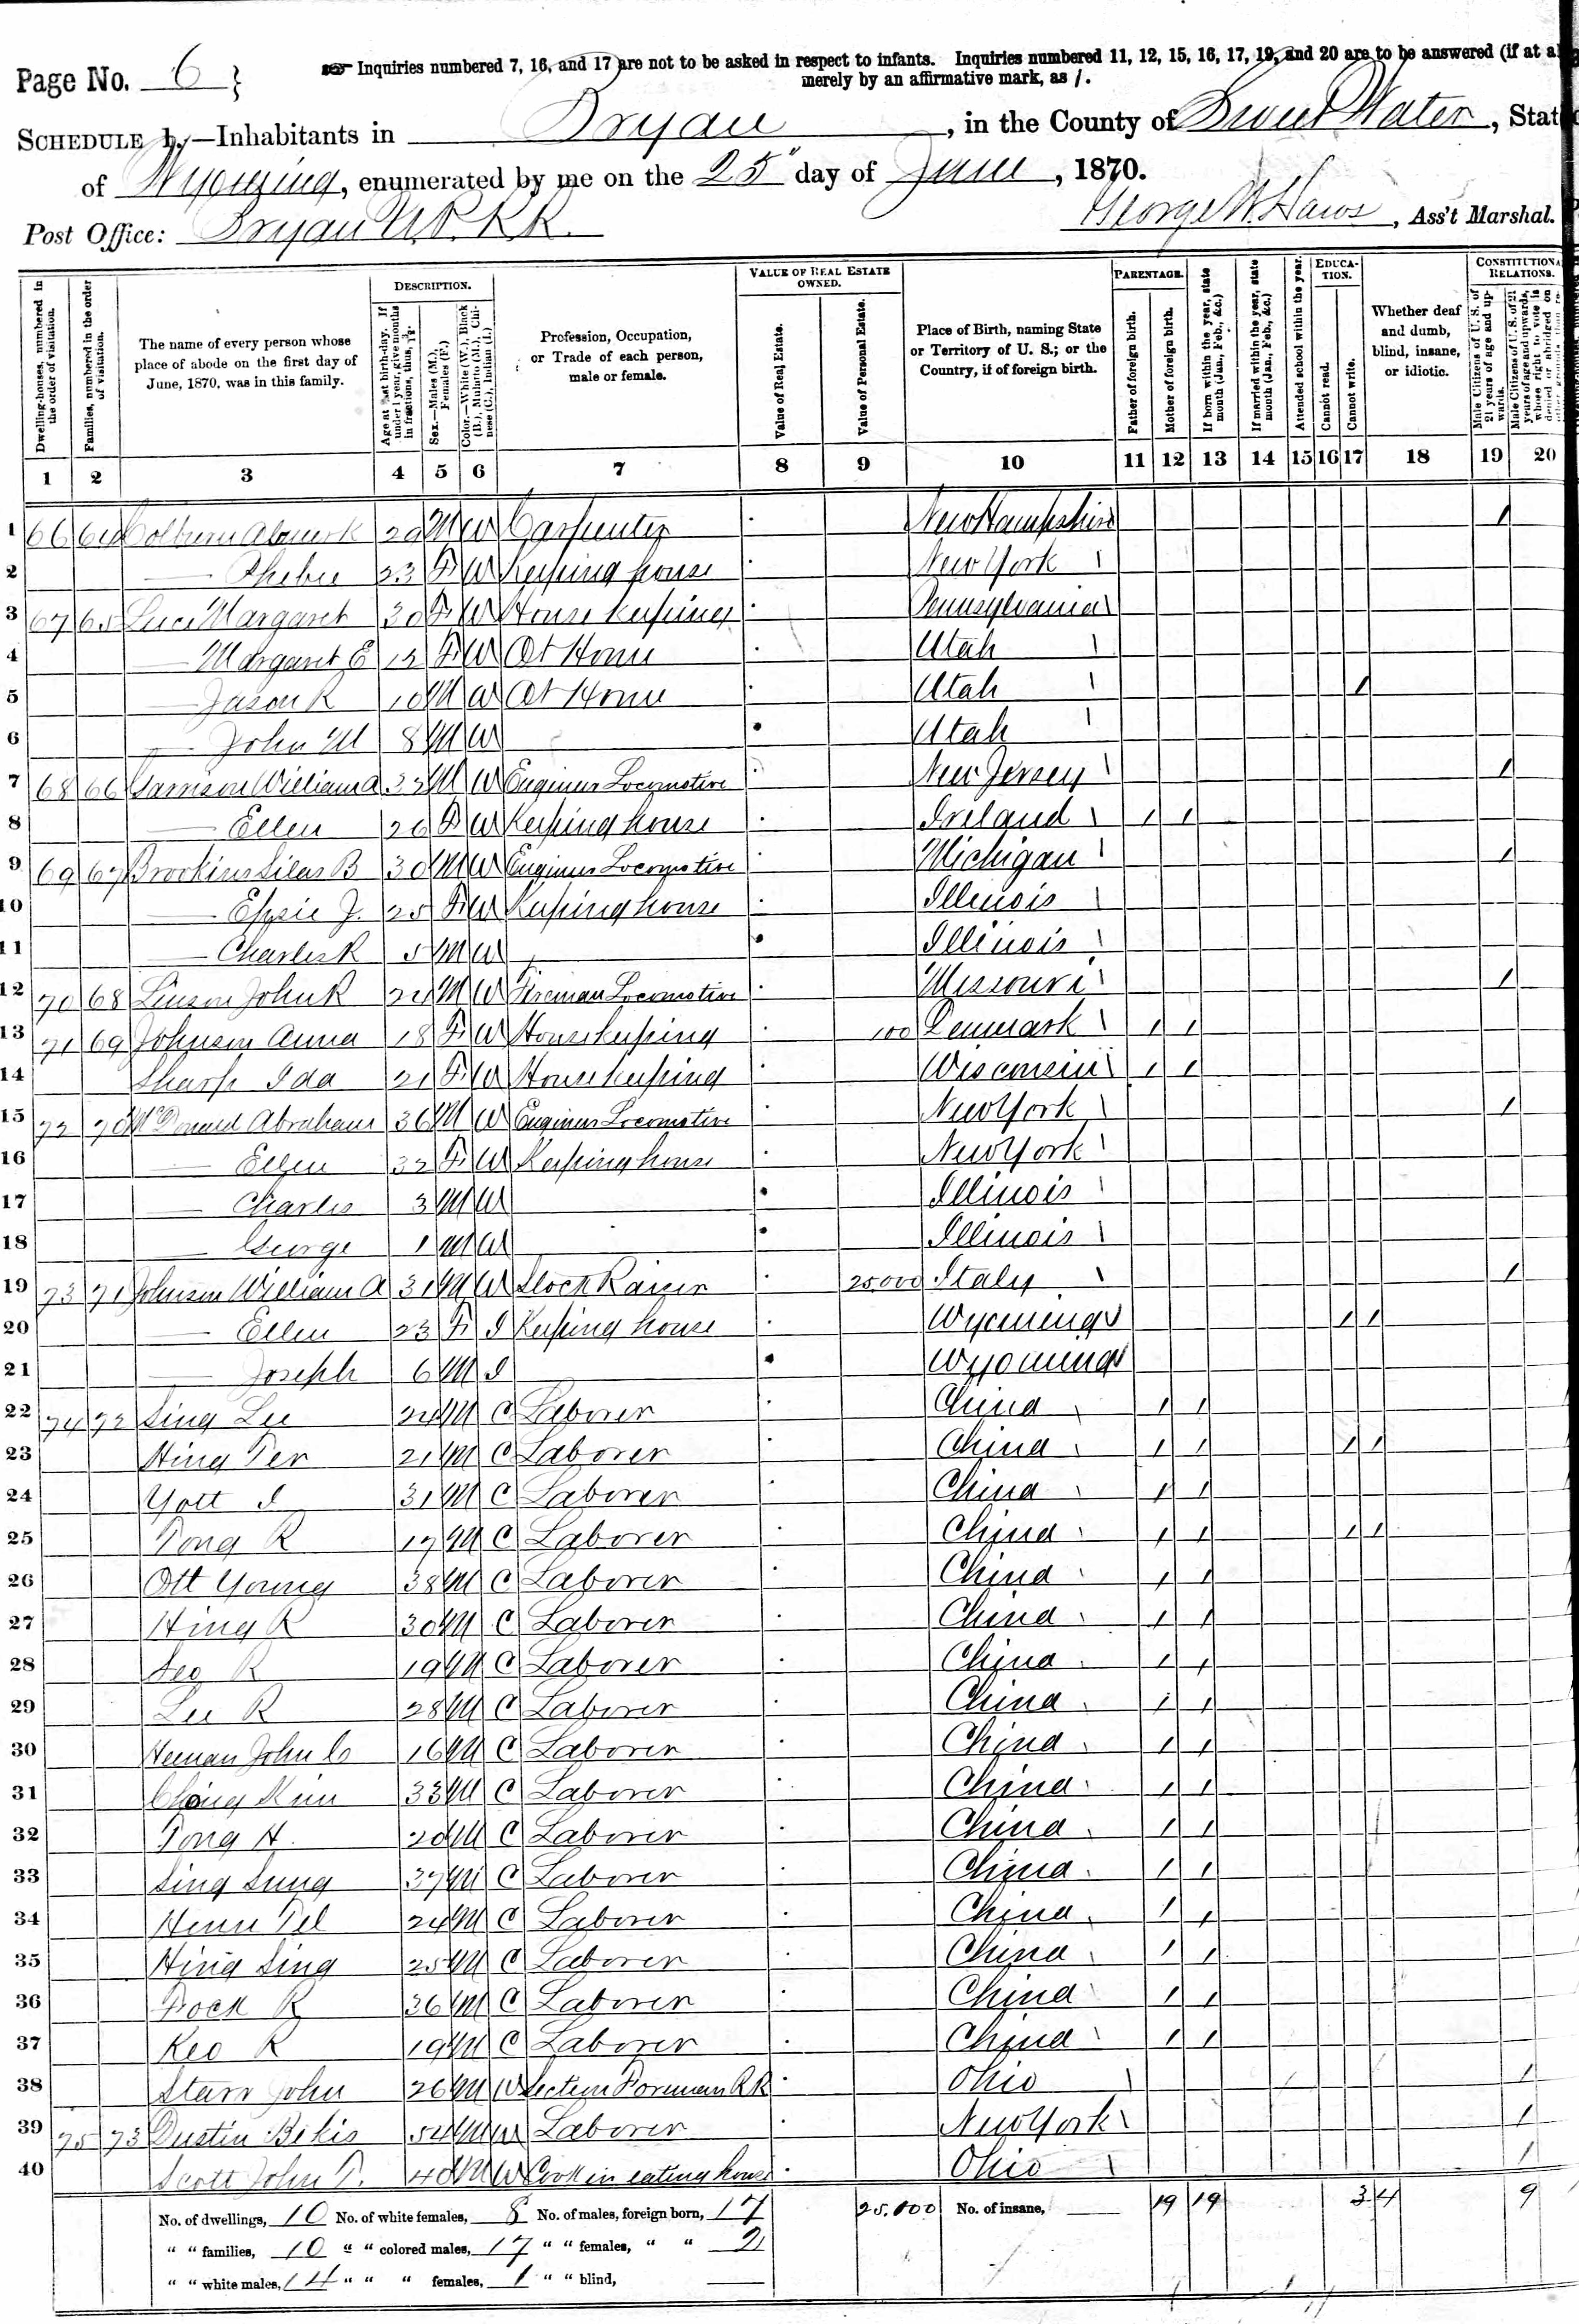 Page No. 6 }
☞ Inquiries numbered 7, 16, and 17 are not to be asked in respect to infants. Inquiries numbered 11, 12, 15, 16, 17, 19, and 20 are to be answered (if at al
merely by an affirmative mark, as /.
SCHEDULE 1.—Inhabitants in Bryan, in the County of Sweet Water, Stat
of Wyoming, enumerated by me on the 25" day of June, 1870.
Post Office: Bryan U.P.R.R. George W. Haws, Ass't Marshal.
Dwelling-houses, numbered in the order of visitation.
Families, numbered in the order of visitation.
The name of every person whose place of abode on the first day of June, 1870, was in this family.
DESCRIPTION.
Age at last birth-day. If under 1 year, give months in fractions, thus,
Sex.—Males (M.), Females (F.)
Color.—White (W.), Black (B.), Mulatto (M.), Chinese (C.), Indian (I.)
Profession, Occupation, or Trade of each person, male or female.
VALUE OF REAL ESTATE OWNED.
Value of Real Estate.
Value of Personal Estate.
Place of Birth, naming State or Territory of U. S.; or the Country, if of foreign birth.
PARENTAGE.
Father of foreign birth.
Mother of foreign birth.
If born within the year, state month (Jan., Feb., &c.)
If married within the year, state month (Jan., Feb., &c.)
EDUCATION.
Attended school within the year.
Cannot read.
Cannot write.
Whether deaf and dumb, blind, insane, or idiotic.
CONSTITUTIONA RELATIONS.
Male Citizens of U. S. of 21 years of age and upwards.
Male Citizens of U. S. of 21 years of age and upwards, whose right to vote is denied or abridged on
1 2 3 4 5 6 7 8 9 10 11 12 13 14 15 16 17 18 19 20
1 66 64 Colburn 29 M W Carpenter New Hampshire /
2 — Phebe 23 F W Keeping house New York
3 67 65 Luce Margaret 30 F W House Keeping Pennsylvania
4 — Margaret E 12 F W At Home Utah
5 — Jason R 10 M W At Home Utah /
6 — John M 8 M W Utah
7 68 66 William A 32 M W Engineer Locomotive New Jersey /
8 — Ellen 26 F W Keeping house Ireland / /
9 69 67 Brookins Silas B 30 M W Engineer Locomotive Michigan /
10 — J. 25 F W Keeping house Illinois
11 — Charles R 5 M W Illinois
12 70 68 Linson John R 24 M W Fireman Locomotive Missouri /
13 71 69 Johnson Anna 18 F W House Keeping 100 Denmark / /
14 Sharp Ida 21 F W House Keeping Wisconsin / /
15 72 70 Abraham 36 M W Engineer Locomotive New York /
16 — Ellen 32 F W Keeping house New York
17 — Charles 3 M W Illinois
18 — George 1 M W Illinois
19 73 71 Johnson William A 31 M W Stock Raiser 25000 Italy /
20 — Ellen 23 F I Keeping house Wyoming / /
21 — Joseph 6 M I Wyoming
22 74 72 Sing Lee 24 M C Laborer China / /
23 Hing Ter 21 M C Laborer China / / / /
24 Yott I 31 M C Laborer China / /
25 Tong R 17 M C Laborer China / / / /
26 Ott Young 38 M C Laborer China / /
27 Hing R 30 M C Laborer China / /
28 Seo R 19 M C Laborer China / /
29 Lee R 28 M C Laborer China / /
30 Heenan John C 16 M C Laborer China / /
31 Ching Kim 33 M C Laborer China / /
32 Tong H. 20 M C Laborer China / /
33 Sing Sung 37 M C Laborer China / /
34 24 M C Laborer China / /
35 Hing Sing 25 M C Laborer China / /
36 Fock R 36 M C Laborer China / /
37 Keo R 19 M C Laborer China / /
38 Starr John 26 M W Section Foreman RR Ohio /
39 75 73 Dustin 54 M W Laborer New York /
40 Scott John T. 40 M W Cook in eating house Ohio /
No. of dwellings, 10 No. of white females, 8 No. of males, foreign born, 17 25.000 No. of insane, — 19 19 3 4 9
" " families, 10 " " colored males, 17 " " females, " " 2
" " white males, 14 " " " females, 1 " " blind, —